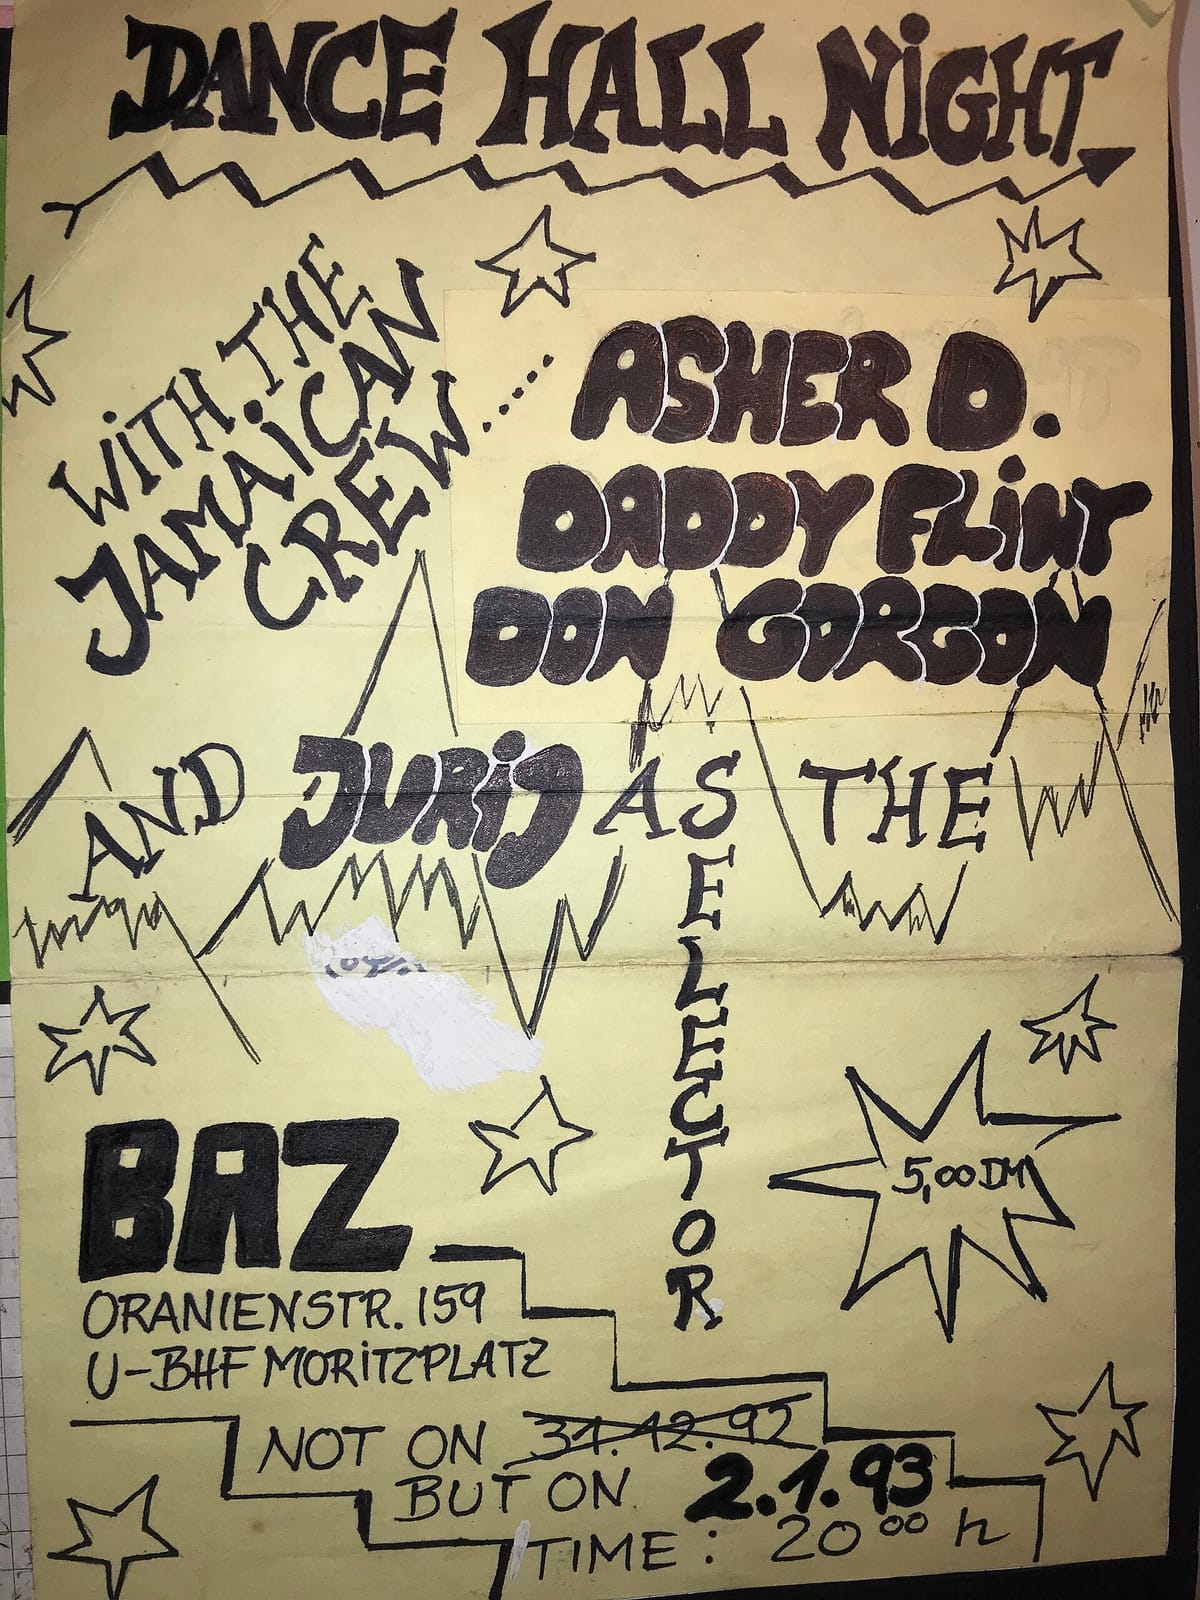 DANCE HALL NiGHT
WiTH THE
JAMAiCAN
CREW......
ASHER D.
DADDY FLiNT
DON GORGON
AND JURiJ AS THE
SELECTOR
BAZ
ORANIENSTR. 159
U-BHF MORiTZPLATZ
5,00 DM
NOT ON 31.12.92
BUT ON 2.1.93
TIME: 20 00 h